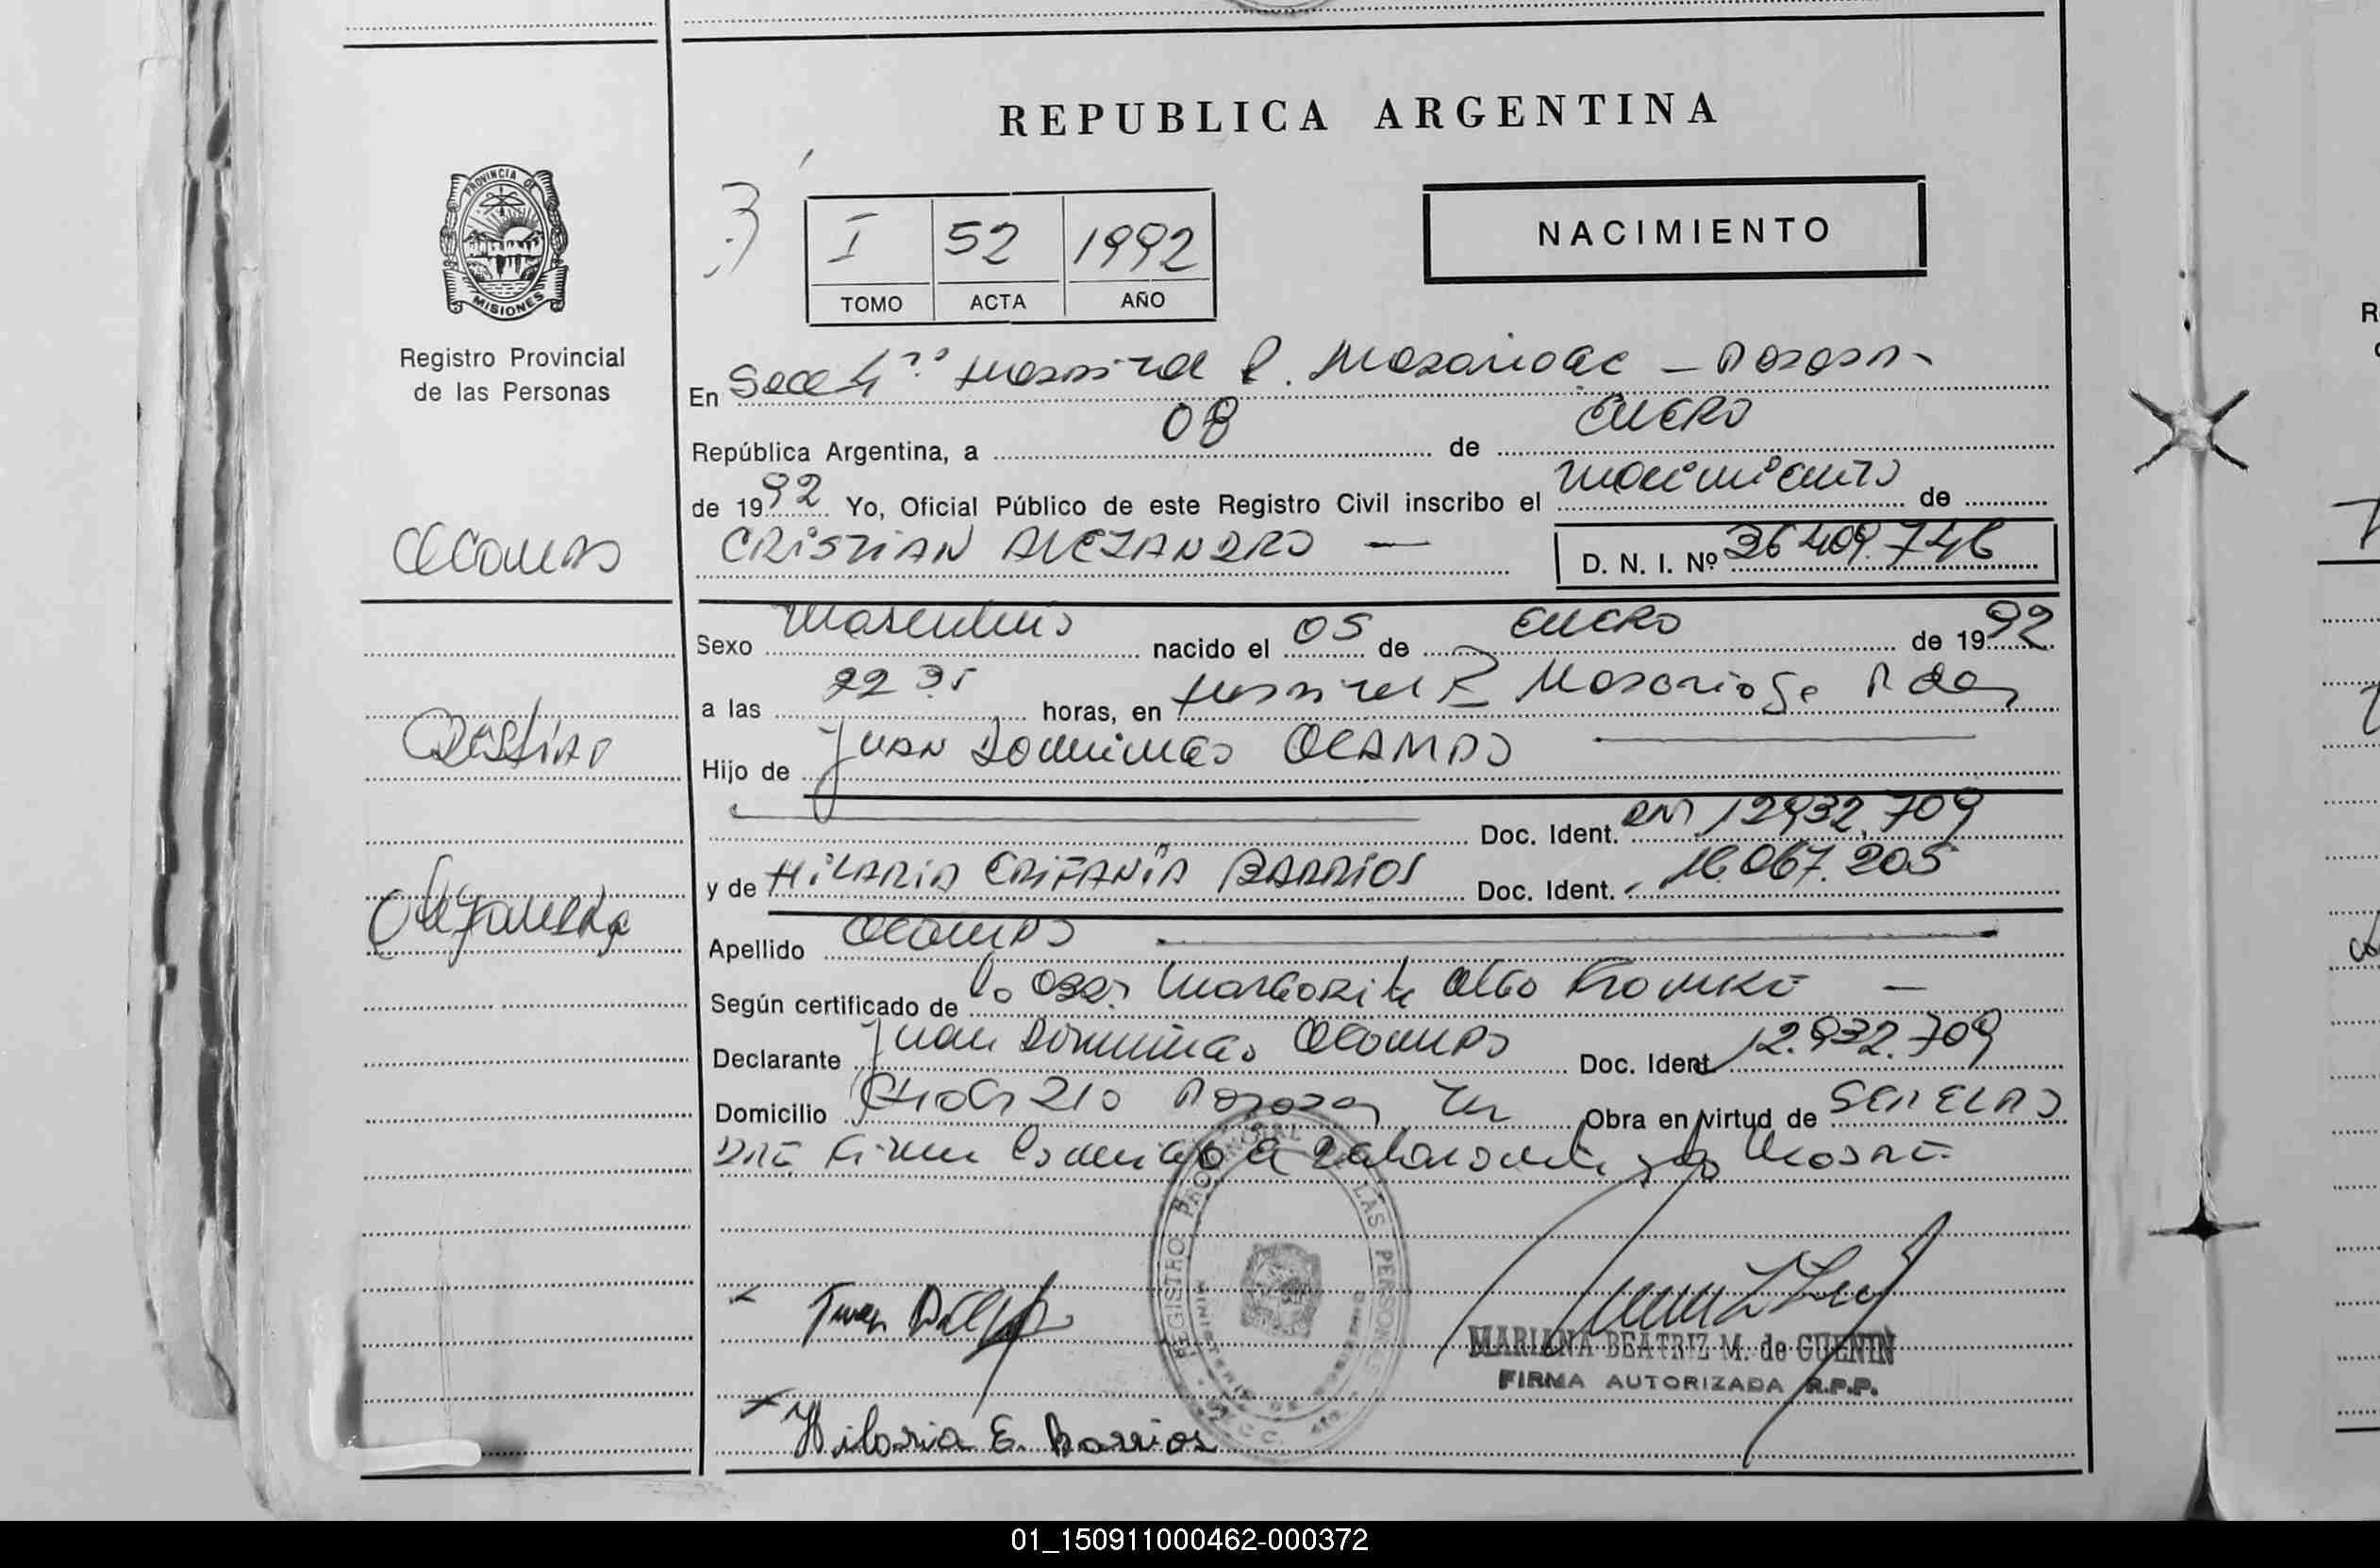 REPUBLICA ARGENTINA
PROVINCIA DE
MISIONES
Registro Provincial
de las Personas
I 52 1992
TOMO ACTA AÑO
NACIMIENTO
En Secc R. Madariaga - Posadas
República Argentina, a 08 de ENERO
de 1992 Yo, Oficial Público de este Registro Civil inscribo el nacimiento de
Ocampo
CRISTIAN ALEJANDRO —
D. N. I. Nº 36.409.746
Sexo Masculino nacido el 05 de ENERO de 1992
a las 22 35 horas, en Hospital R Madariaga Pdas
Cristian
Hijo de JUAN DOMINGO OCAMPO
Doc. Ident. DNI 12.932.709
Alejandro
y de HILARIA EPIFANIA BARRIOS Doc. Ident. 16.067.205
Apellido OCAMPO
Según certificado de la Margarita —
Declarante Juan Domingo Ocampo Doc. Ident 12.932.709
Domicilio 210 Posadas Obra en virtud de
DRE Firma a
REGISTRO PROVINCIAL LAS PERSONAS
MARIANA BEATRIZ M. de GUENIN
FIRMA AUTORIZADA R.P.P.
Hilaria E. Barrios
01_150911000462-000372